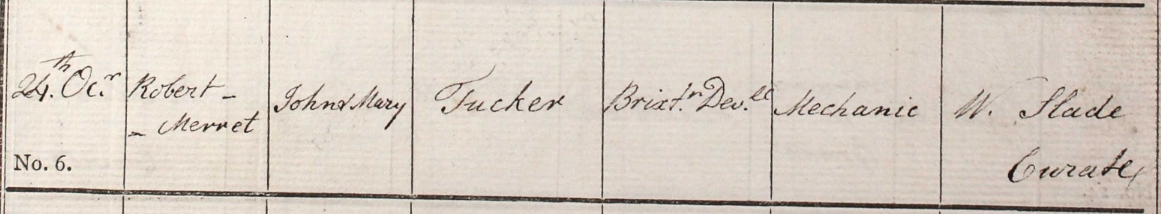 24.th Oc.r Robert - John & Mary Tucker Brixt.n Dev.ll Mechanic W. Slade
- Merret
No. 6. Curate